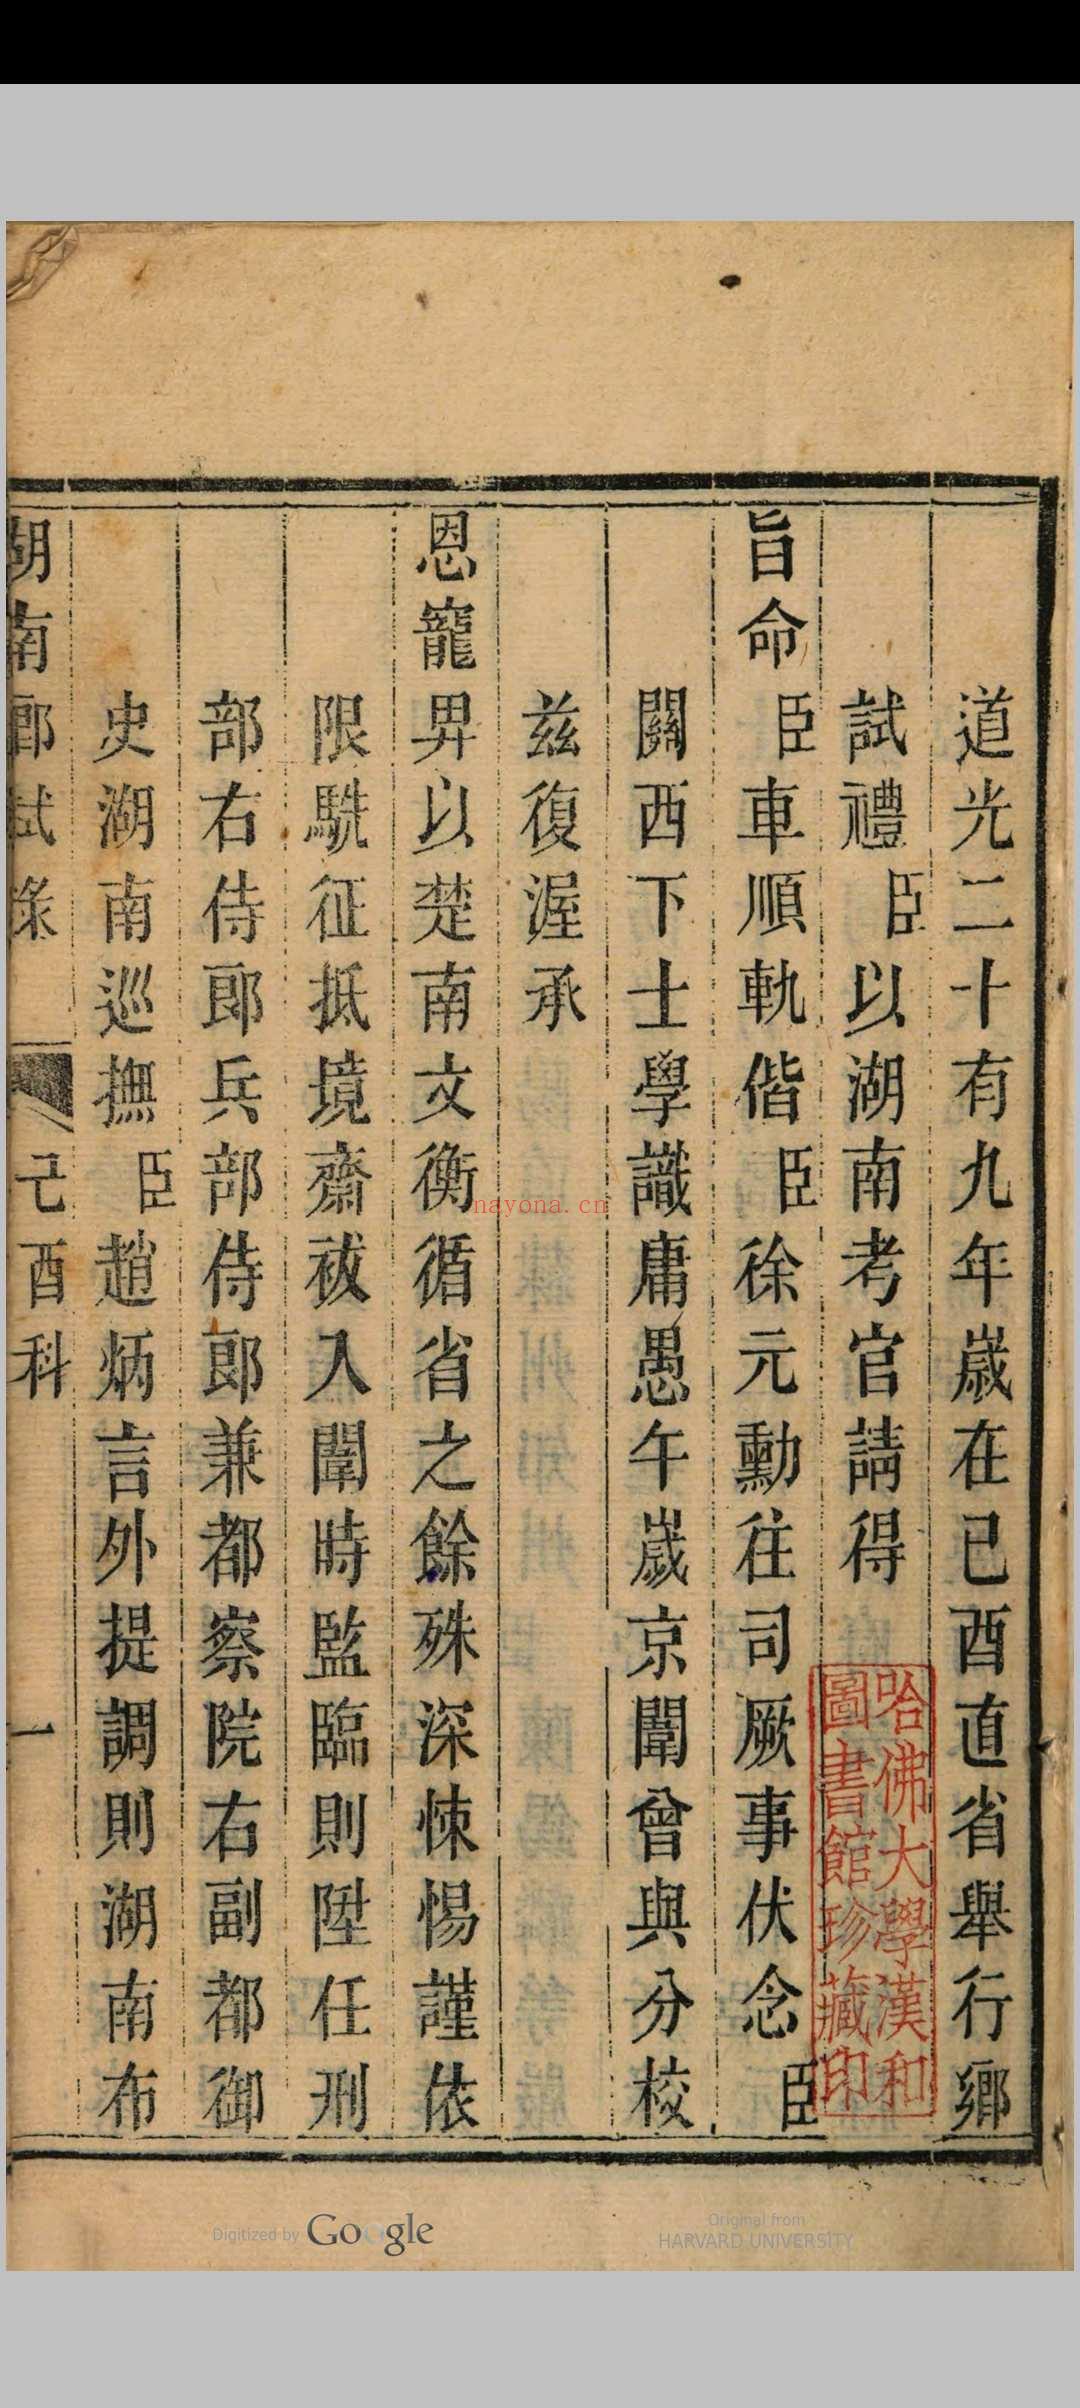 道光二十有九年歲在己酉直省舉行鄉
試禮臣以湖南考官請得
旨命臣車順軌偕臣徐元勳往司厥事伏念臣
關西下士學識庸愚午歲京闈曾與分校
茲復渥承
恩寵畀以楚南文衡循省之餘殊深悚惕謹依
限駪征抵境齋祓入闈時監臨則陞任刑
部右侍郎兵部侍郎兼都察院右副都御
史湖南巡撫臣趙炳言外提調則湖南布
湖南鄉試錄 己酉科 一
哈佛大學漢和
圖書館珍藏印
nayona.cn
Digitized by Google
Original from
HARVARD UNIVERSITY